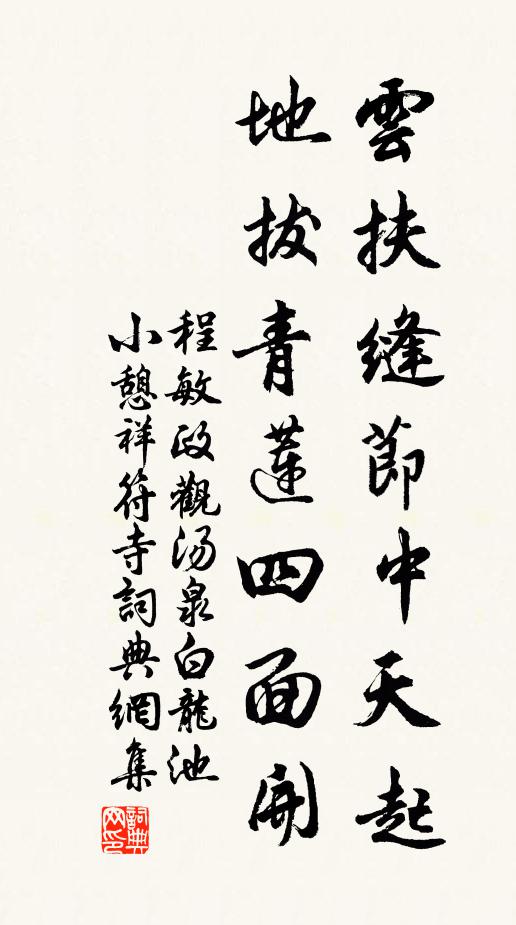 雲扶縫節中天起
地拔青蓮四面開
程敏政觀湯泉白龍池
小憩祥符寺詞典網集
詞典网印